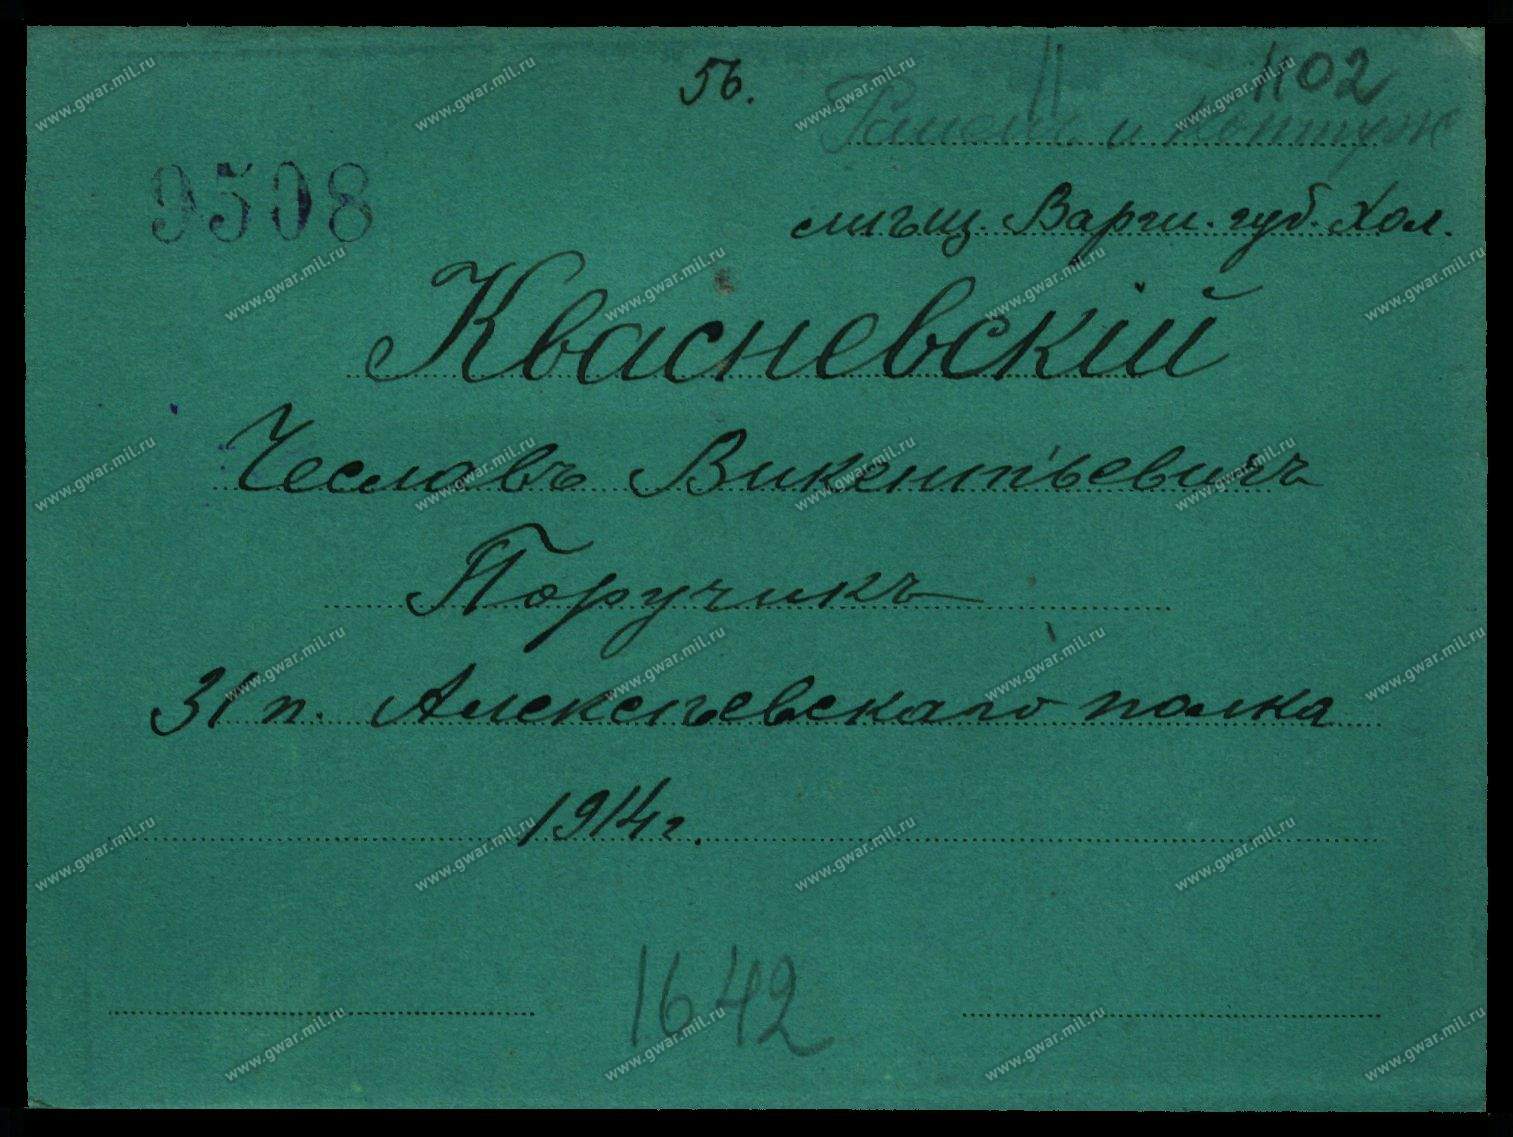 56.
1102
Ранен и Контуж
9508
мѣщ. Варш. губ. Хол.
Квасневскій
Чеславъ Викентьевичъ
Поручикъ
31 п. Алексѣевскаго полка
1914 г.
1642
www.gwar.mil.ru